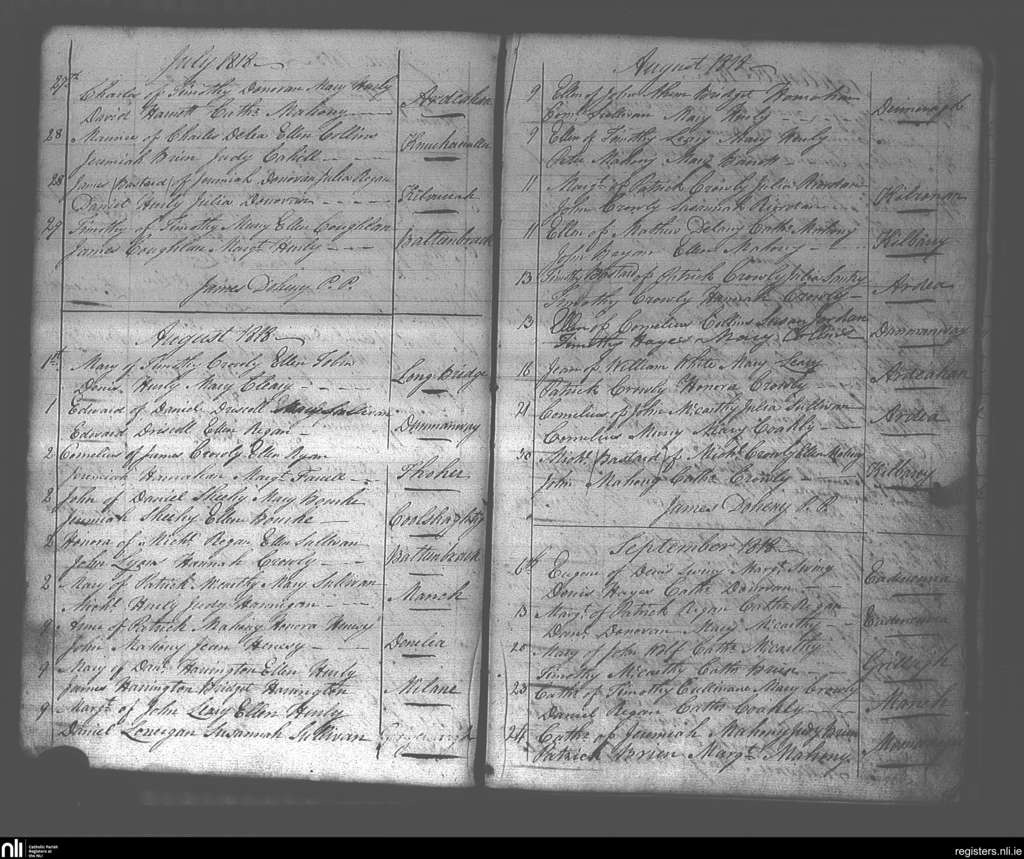 July 1818
27th Charles of Timothy Donovan Mary Hurly
David Hawett Cathe Mahony Ardeahan
28 Maurice of Charles Delea Ellen Collins
Jeremiah Brien Judy Cahill
28 James (Bastard) of Jeremiah Donovan Julia Regan
Daniel Hurly Julia Donovan Kilronah
29 Timothy of Timothy Murry Ellen Coughlan
James Coughlan Margt Hurly
James Doheny P.P.
August 1818
1st Mary of Timothy Crowly Ellen Tobin
Denis Hurly Mary Cleary Long Bridge
1 Edward of Daniel Driscoll Mary Sullivan
Edward Driscoll Ellen Regan Dunmanway
2 Cornelius of James Crowly Ellen Ryan
Jeremiah Hanrahan Margt Farrell Thoher
8 John of Daniel Sheehy Mary Bourke
Jeremiah Sheehy Ellen Bourke
8 Honora of Michl Regan Ellen Sullivan
John Lyons Hannah Crowly
8 Mary of Patrick McCarthy Mary Sullivan
Michl Hurly Judy Hannigan Manch
9 of Patrick Mahony Honora Henesy
John Mahony Jean Henesy Demelea
9 Mary of Danl Harrington Ellen Hurly
James Harrington Bridget Harrington Milane
9 Margt of John Leary Ellen Hurly
Daniel Lonergan Susannah Sullivan
August 1818
9 Ellen of John Bridget
Sullivan Mary Hurly
9 Ellen of Timothy Leary Mary Hurly
Peter Mahony Mary
11 Margt of Patrick Crowly Julia Riordan
John Crowly Susannah Riordan Kilronan
11 Ellen of Mathew Delany Cathe Mahony
John Ellen Mahony Kilbarry
13 Timothy Bastard of Patrick Crowly Julia
Timothy Crowly Hannah Crowly Ardea
13 Ellen of Cornelius Collins Susan Jordan
Timothy Hayes Mary Collins Dunmanway
16 Jean of William White Mary Leary
Patrick Crowly Honora Crowly Ardeahan
21 Cornelius of John McCarthy Julia Sullivan
Cornelius Murry Mary Coakly Ardea
30 Michl (Bastard) of Michl Crowly Ellen
John Mahony Cathe Crowly Kilbarry
James Doheny P.P.
September 1818
6th Eugene of Denis Swiny Margt Swiny
Denis Hayes Cathe Donovan
13 Margt of Patrick Regan Cathe Regan
Danl Donovan Mary McCarthy
20 Mary of John Wolf Cathe McCarthy
Timothy McCarthy Cathe Brien
23 Cathe of Timothy Cullinane Mary Crowly
Daniel Regan Cathe Coakly Manch
24 Cathe of Jeremiah Mahony Judy Brien
Patrick Brien Margt Mahony
nli Catholic Parish
Registers at
the NLI
registers.nli.ie